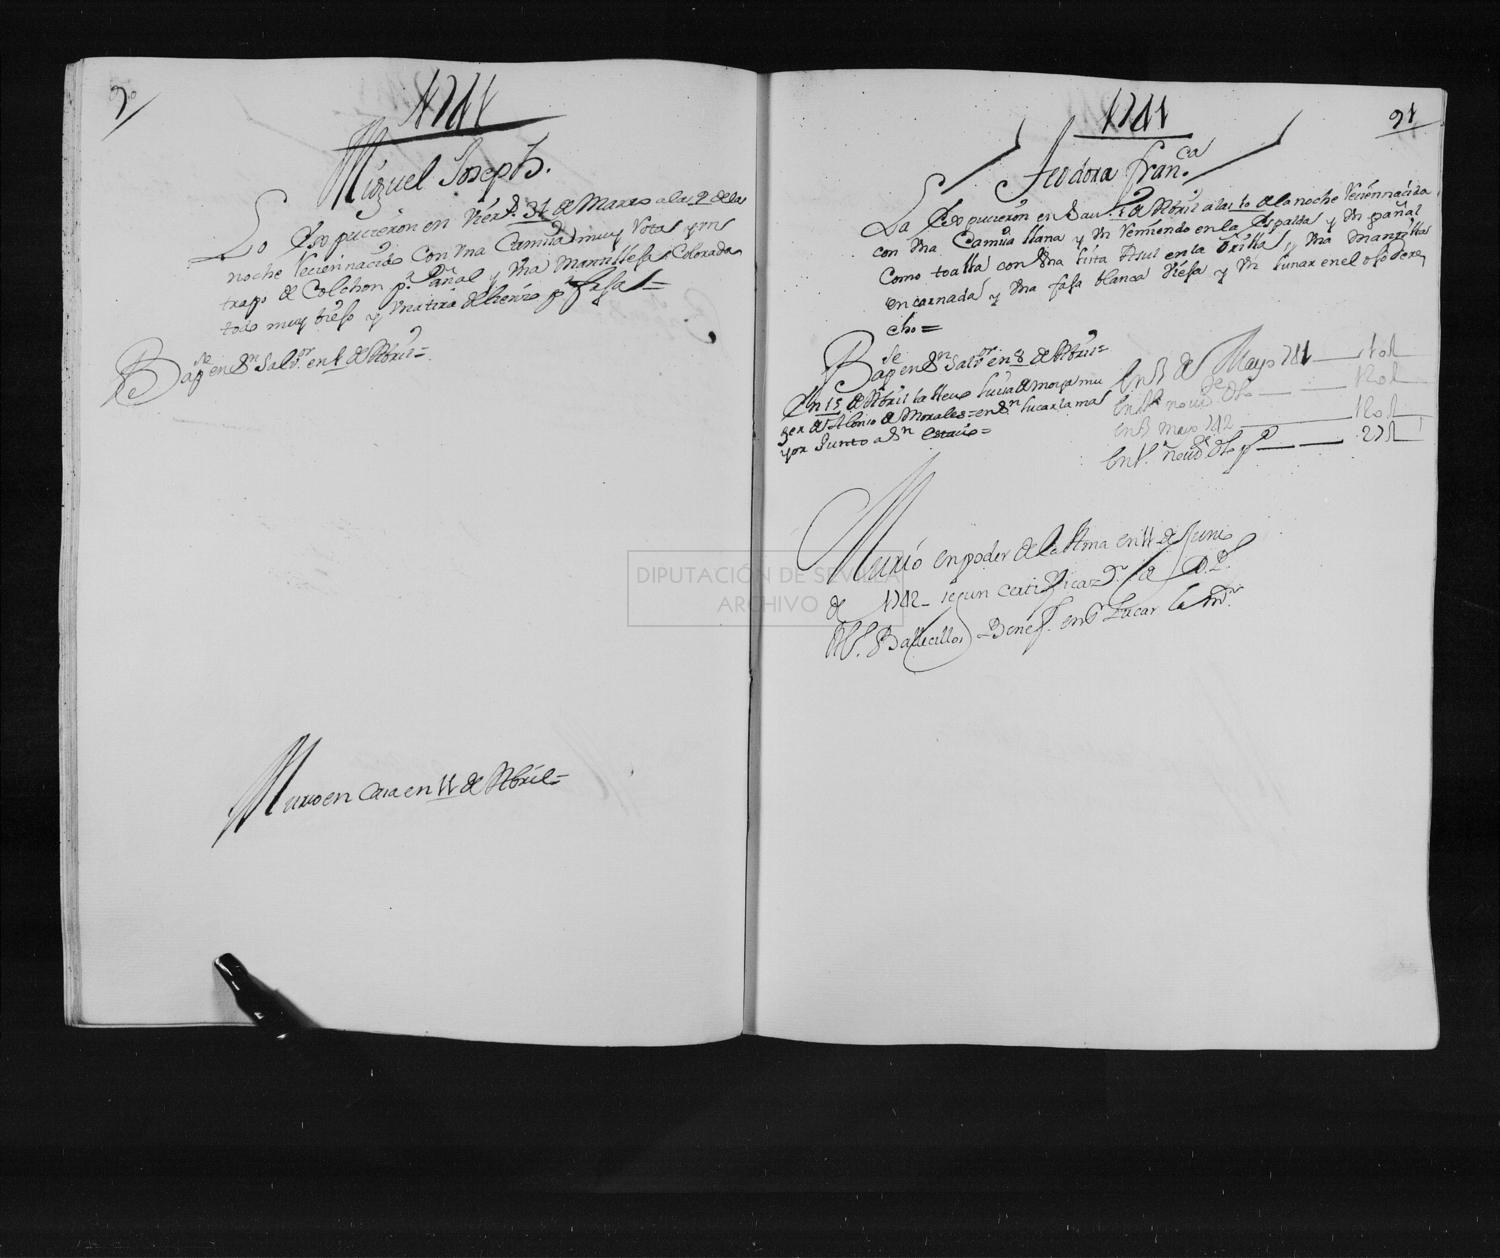 1741
Miguel Joseph.
Lo Espusieron en Viern.s 31 de Marzo a las 9 de la
noche recien nacido con Una Camisa muy Rota y un
trapo de Colchon p.r Pañal y Una Mantilleja Colorada
todo muy biejo y Una tira de lienzo p.r faja =
Bap.se en S.n Salv.or en 1 de Abril =
Murio en Casa en 11 de Abril =
1741
91
Teodora Fran.ca
La Espusieron en Sau. 1 de Abril a las 10 de la noche recien nacida
con Una Camisa llana y Un remiendo en la Espalda y Un pañal
Como toalla con Una lista Asul en la Orilla y Una Mantilla
encarnada y Una faja blanca Vieja y Un lunar en el ojo dere
cho =
Bap.se en S.n Salv.or en 8 de Abril =
En 15 de Abril la llevo Lucia de mu
ger de Alonso de Morales = en S.n Lucar la ma
yor Junto a S.n =
En 3 de Mayo 741 — 10
En 1 nov.e D.ho — 120
en 3 mayo 742 — 120
En 1.º nov.e D.ho — 27
Murió en poder de la Ama en 11 de Junio
de 1742 — segun certificaz.n de D.
Ballecillos Benef. en S. Lucar la m.or
DIPUTACIÓN DE SEVILLA
ARCHIVO